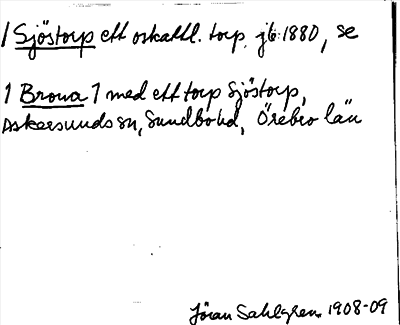 / Sjöstorp ett oskattl. torp. jb: 1880, se
1 Brona 7 med ett torp Sjöstorp,
Askersunds sn, Sundbo hd, Örebro län
Jöran Sahlgren 1908-09